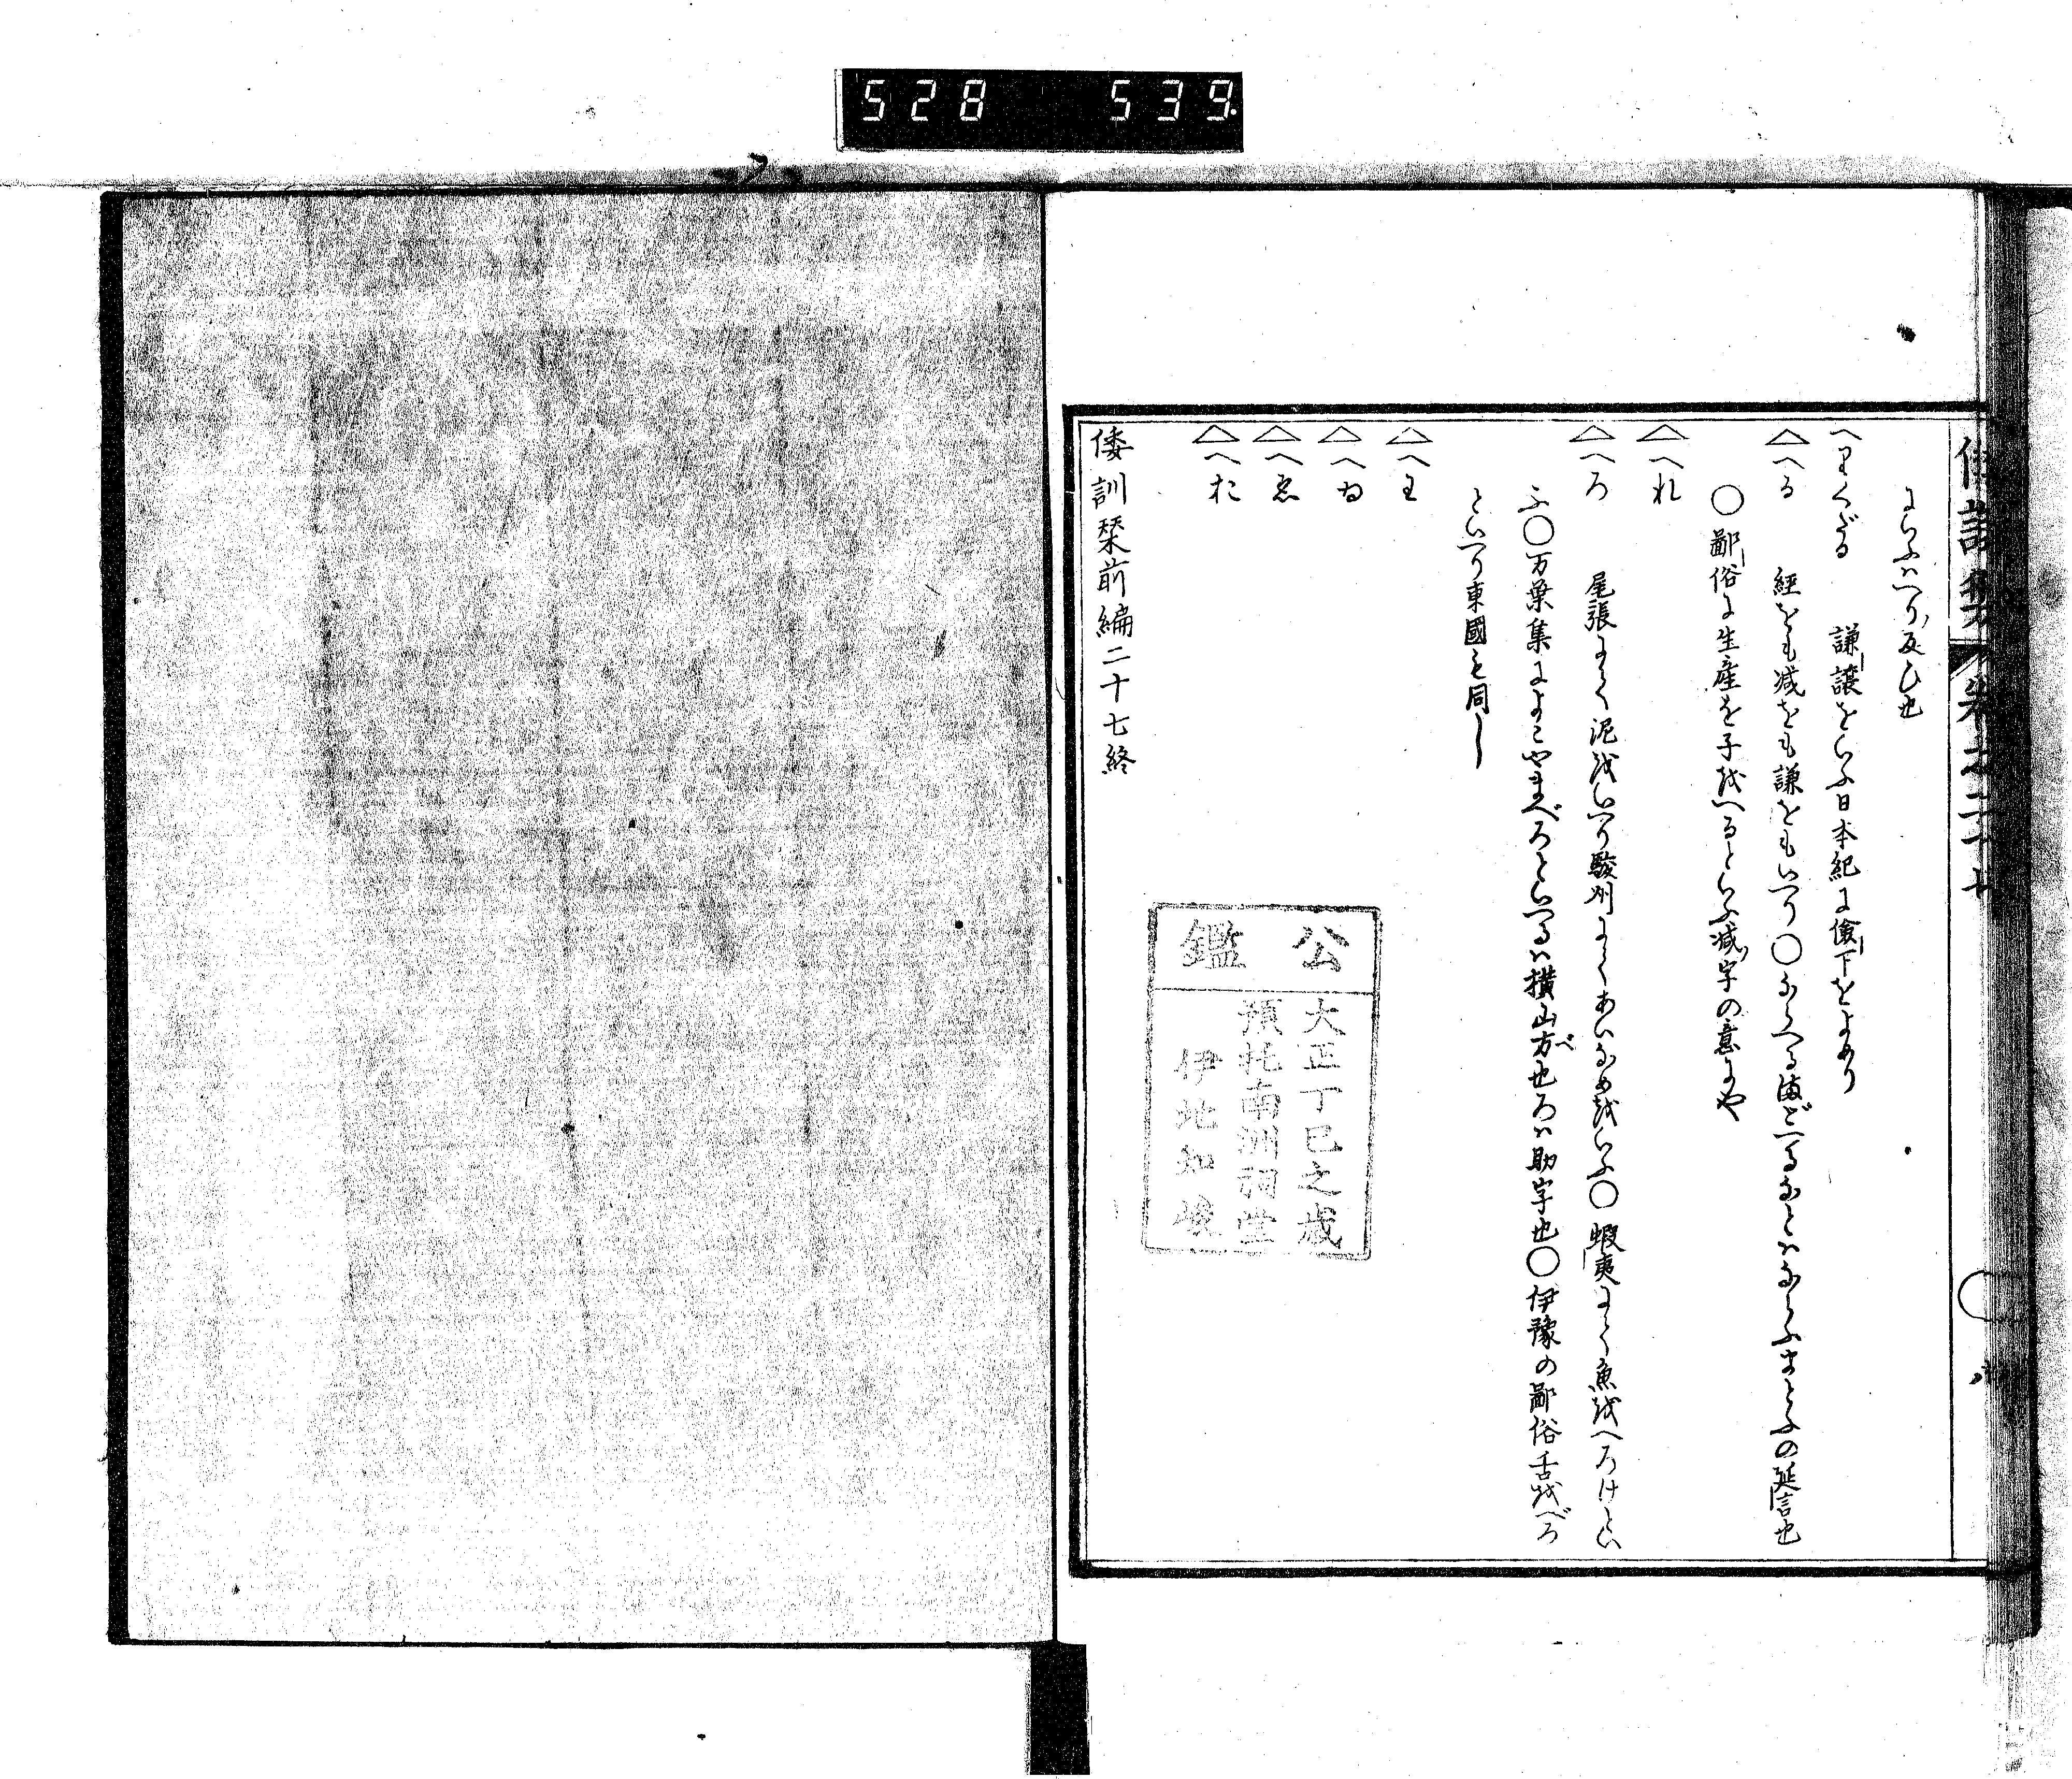 528 539
にいふハへり反ひ也
へりくだる　謙讓をいふ日本紀に儉下をよめり
△へる　経をも減をも謙をもいへり〇なへる海どへるなとハなふまとふの延言也
〇鄙俗に生産を子をへるといふ減字の意にや
△へれ
△へろ　尾張にて泥をいへり駿州にてあいなめをいふ〇蝦夷にて魚をへろけとい
ふ〇万葉集によこやまべろといへるハ横山方也ろハ助字也〇伊豫の鄙俗舌をべろ
といへり東國も同し
△へわ
△へゐ
△へゑ
△へを
倭訓栞前編二十七終
公鑑
大正丁巳之歳
預托南洲祠堂
伊地知峻